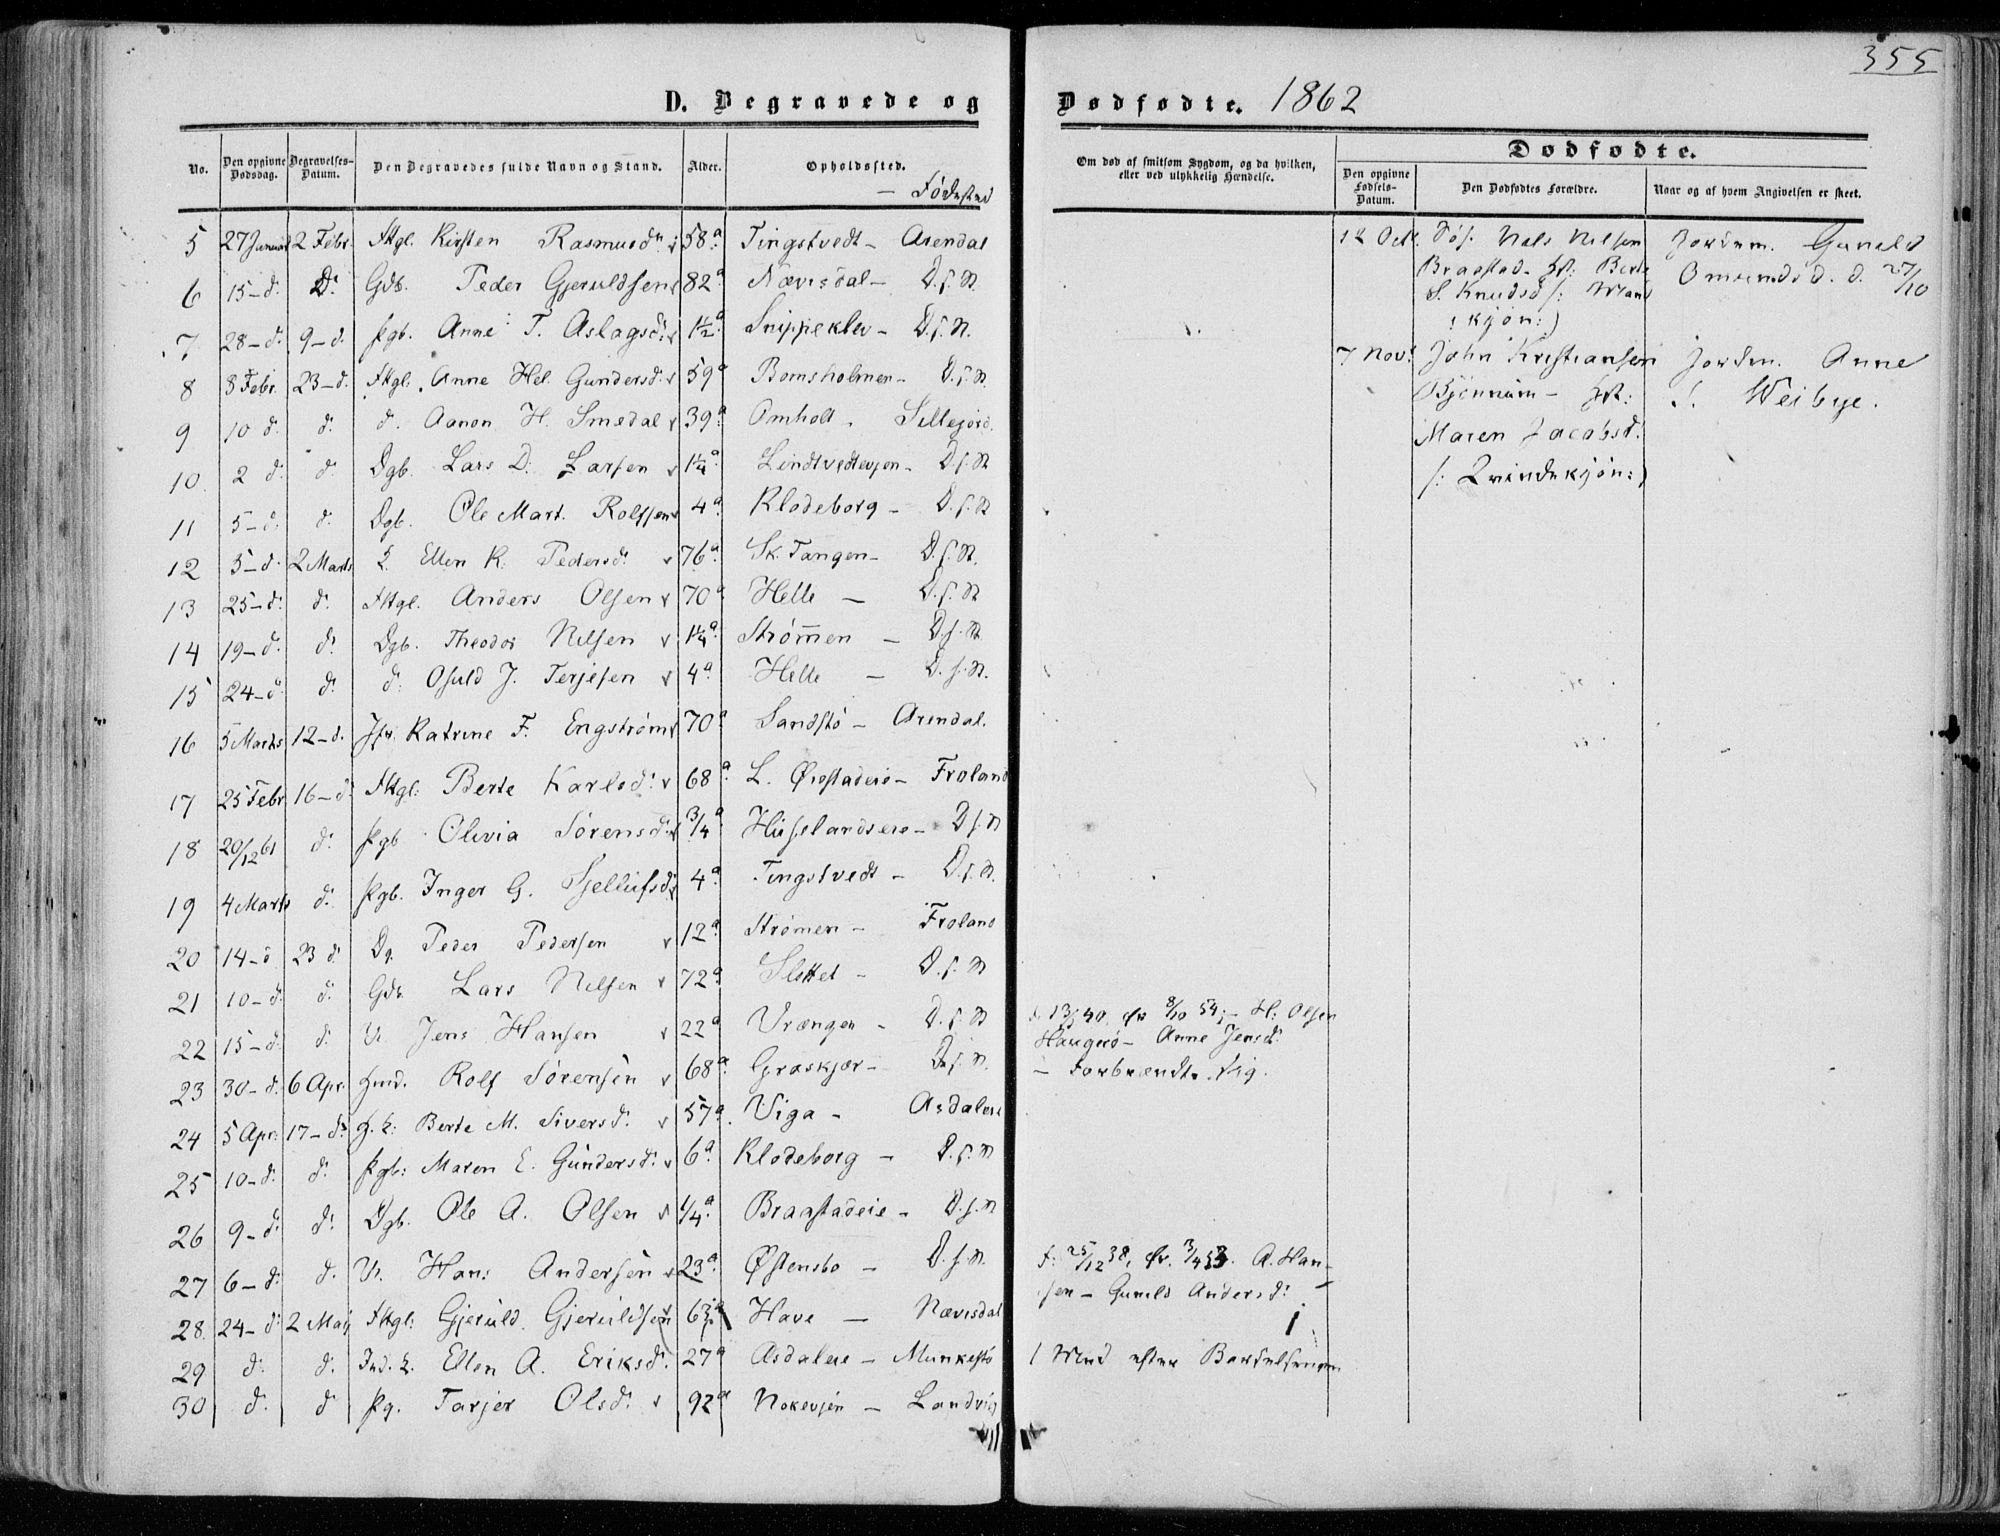 355
D. Begravede og Dødfødte. 1862
No. Den opgivne Dødsdag. Begravelses-Datum. Den Begravedes fulde Navn og Stand. Alder. Opholdssted. — Fødested
Om død af smitsom Sygdom, og da hvilken, eller ved ulykkelig Hændelse.
Dødfødte.
Den opgivne Fødsels-Datum. Den Dødfødtes Forældre. Naar og af hvem Angivelsen er skeet.
5 27 Januar 2 Febr. Ftgl. Kirsten Rasmusd: 58 a Tingstvedt – Arendal
6 15 – d: D: Gdb. Peder Gjeruldsen 82 a Nævisdal – D.s.St.
7 28 – d: 9 – d: Pgb. Anne T. Aslagsd: 1½ a Snippeklev – D.s.St.
8 8 Febr. 23 – d. Ftgl. Anne Hel. Gundersd: 59 a Bomsholmen – D.s.St.
9 10 d: d: d. Aanon H. Smedal 39 a Omholt – Sillejord.
10 2 d: d: Dgb. Lars D: Larsen 1¼ a Lindtvedtevjen – D.s.St
11 5 – d: d: Dgb. Ole Mart. Rolfsen 4 a Klodeborg – D.s.St
12 5 – d. 2 Marts Ellen K. Pedersd: 76 a Sk. Tangen – D.s.St.
13 25 – d: d: Ftgl. Anders Olsen 70 a Helle – D.s.St
14 19 – d: d: Dgb. Theodor Nilsen 1¼ a Strømmen – D.s.St
15 24 – d: d: d: Osuld J. Terjesen 4 a Helle – D.s.St.
16 5 Marts 12 – d. Jfr. Katrine F. Engstrøm 70 a Sandstø – Arendal.
17 25 Febr 16 – d: Ftgl: Berte Karlsd: 68 a L. Ørstadeie – Froland
18 20/12 61 d: Pgb Olivia Sørensd: 3/4 a Hiselandseie – D.s.St
19 4 Marts d: Pgb. Inger G. Tjellufsd: 4 a Tingstvedt – D.s.St.
20 14 – d 23 d: Dg. Peder Pedersen 12 a Strømen – Froland
21 10 – d: d: Gdb. Lars Nilsen 72 a Slettet – D.s.St
22 15 – d: d: U. Jens Hansen 22 a Vrængen – D.s.St
23 30 – d: 6 Apr. Hmd. Rolf Sørensen 68 a Graskjær – D.s.St.
24 5 Apr: 17 – d: Berte M. Siversd: 57 a. Viga – Asdaleie
25 10 – d: d: Pgb: Maren E. Gundersd: 6 a Klodeborg – D.s.St
26 9 – d: d: Dgb. Ole A. Olsen 1/4 a Braastadeie – D.s.St
27 6 – d: d. U. Hans Andersen 23 a Østensbo – D.s.St.
28 24 – d: 2 Maj Ftgl: Gjeruld Gjeruldsen 63 Have — Nævisdal
29 d: d: Ellen A. Eriksd: 27 a Asdaleie – Munkestø
30 d: d Pg. Tarjer Olsd: 92 a Nokevjen – Landvig
40 8/10 54; – H: Olsen
Haugerø – Anne Jensd:
– Forbrændt. Sig.
f: 25/12 38, A. Han-
sen – Gunild Andersd:
1 Uvd efter Barselsengen
12 Oct. Nels Nilsen
Braastad – Berte
S. Knudsd (: Mand
kjøn:)
Jordem. Gunild
Omundsd. d. 27/10
7 Nov: John Kristiansen
Bjønnum –
Maren Jacobsd:
(: Qvindekjøn:)
Jordm. Anne
S. Weibye.